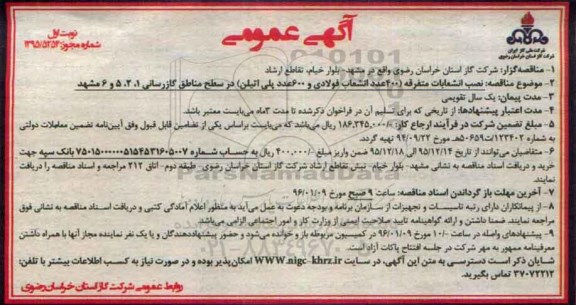 آگهی عمومی
نوبت اول
شماره مجوز: ۱۳۹۵/۵۲۵۴
شرکت ملی گاز ایران
شرکت گاز استان خراسان رضوی
۱- مناقصه‌گزار: شرکت گاز استان خراسان رضوی واقع در مشهد- بلوار خیام، تقاطع ارشاد
۲- موضوع مناقصه: نصب انشعابات متفرقه (۴۰۰عدد انشعاب فولادی و ۶۰۰عدد پلی اتیلن) در سطح مناطق گازرسانی ۱، ۲، ۵ و ۶ مشهد
۳- مدت پیمان: یک سال تقویمی
۴- مدت اعتبار پیشنهادها: از تاریخی که برای تسلیم آن در فراخوان ذکرشده تا مدت ۳ماه می‌بایست معتبر باشد.
۵- مبلغ تضمین شرکت در فرآیند ارجاع کار: ۱۸۶،۲۴۵،۰۰۰ ریال می‌باشد که می‌بایست براساس یکی از تضامین قابل قبول وفق آیین‌نامه تضمین معاملات دولتی
به شماره ۱۲۳۴۰۲/ت۵۰۶۵۹هـ مورخ ۹۴/۰۹/۲۲ تهیه گردد.
۶- متقاضیان می‌توانند از تاریخ ۹۵/۱۲/۱۴ الی ۹۵/۱۲/۱۸ ضمن واریز مبلغ ۴۰۰،۰۰۰ ریال به حساب شماره بانک سپه جهت
خرید و دریافت اسناد مناقصه به نشانی مشهد- بلوار خیام- نبش تقاطع ارشاد شرکت گاز استان خراسان رضوی- طبقه دوم- اتاق ۲۱۲ مراجعه و اسناد مناقصه را دریافت
نمایند.
۷- آخرین مهلت باز گرداندن اسناد مناقصه: ساعت ۹ صبح مورخ ۹۶/۰۱/۰۹
۸- از پیمانکاران دارای رتبه تاسیسات و تجهیزات از سازمان برنامه و بودجه دعوت به عمل می‌آید به منظور اعلام آمادگی کتبی و دریافت اسناد مناقصه به نشانی فوق
مراجعه نمایند. ضمنا داشتن و ارائه گواهینامه تایید صلاحیت ایمنی از وزارت کار و امور اجتماعی الزامی می‌باشد.
۹- پیشنهادهای واصله در ساعت ۱۰:۰۰ مورخ ۹۶/۰۱/۰۹ در کمیسیون مربوطه باز و خوانده می‌شود و حضور پیشنهاددهندگان و یا یک نفر نماینده مجاز آنها با همراه داشتن
معرفینامه ممهور به مهر شرکت در جلسه افتتاح پاکات آزاد است.
شایان ذکر است دسترسی به متن این آگهی، در سایت WWW.nigc-khrz.ir امکان‌پذیر بوده و در صورت نیاز به کسب اطلاعات بیشتر با تلفن:
۳۷۰۷۲۲۱۲ تماس بگیرید.
روابط عمومی شرکت گاز استان خراسان رضوی